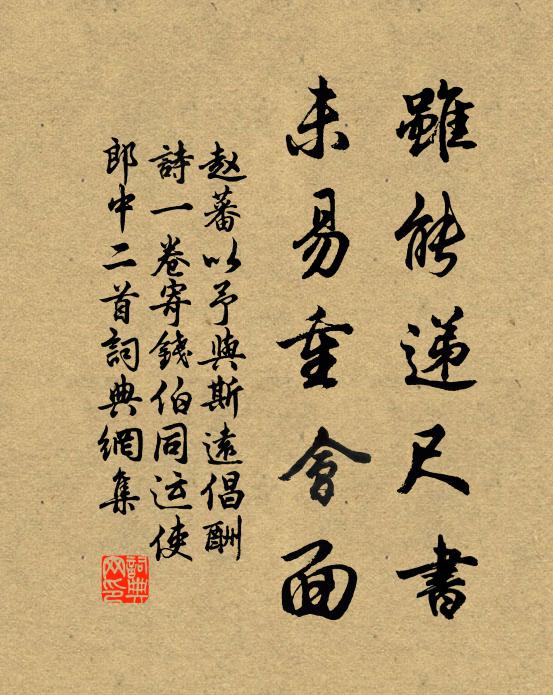 雖能递尺書
未易重會面
赵蕃以予與斯遠倡酬
詩一卷寄錢伯同运使
郎中二首詞典網集
詞典网印